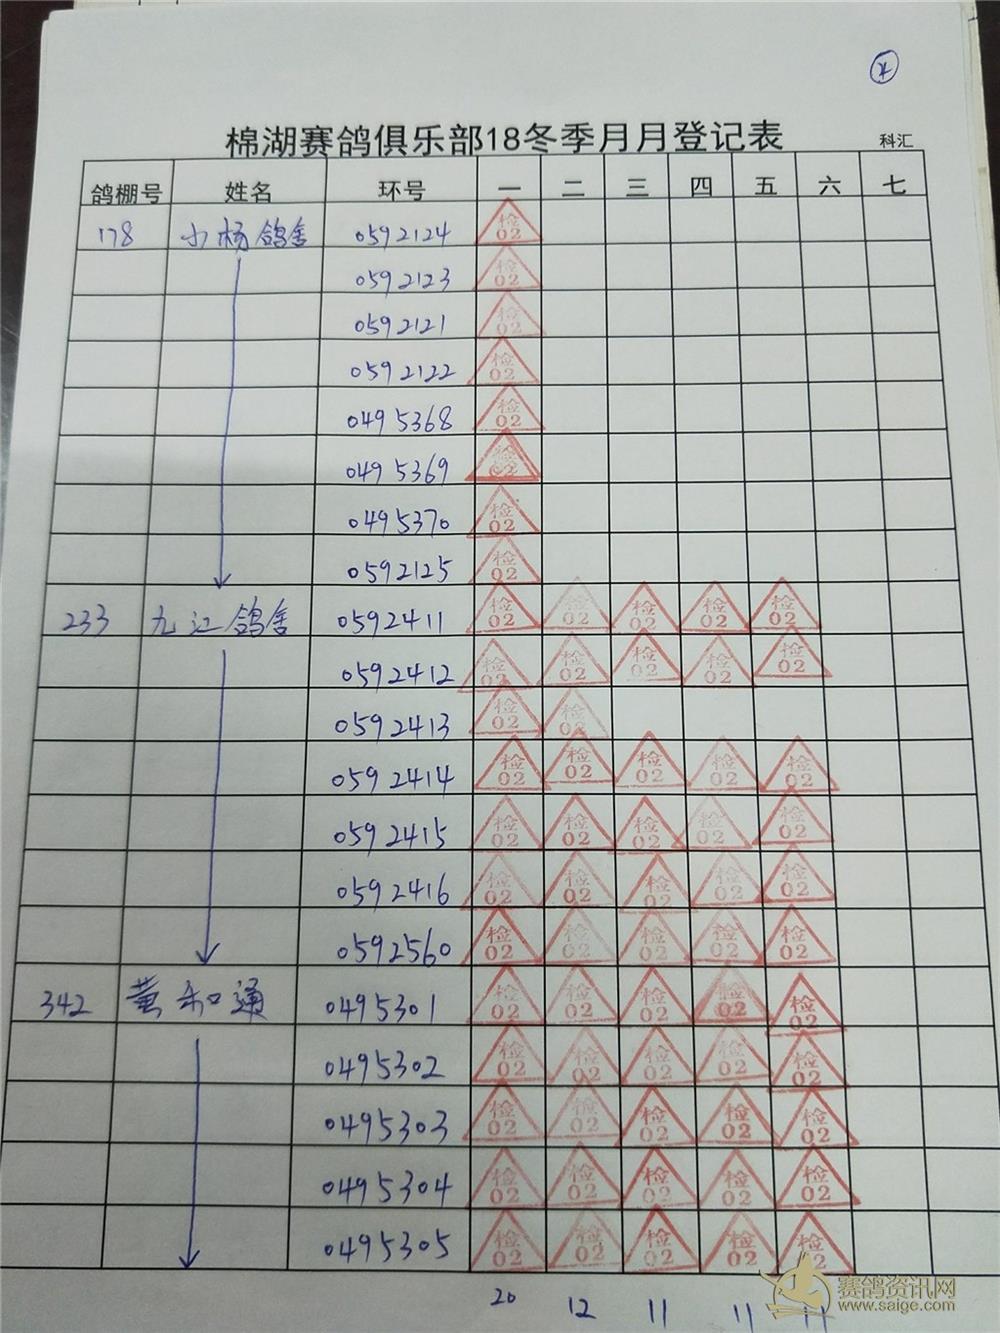 木
棉湖赛鸽俱乐部18冬季月月登记表 科汇
鸽棚号 姓名 环号 一 二 三 四 五 六 七
178 小杨鸽舍 0592124 检02
0592123 检02
0592121 检02
0592122 检02
0495368 检02
0495369 检02
0495370 检02
0592125 检02
233 九江鸽舍 0592411 检02 检02 检02 检02 检02
0592412 检02 检02 检02 检02 检02
0592413 检02 检02
0592414 检02 检02 检02 检02 检02
0592415 检02 检02 检02 检02 检02
0592416 检02 检02 检02 检02 检02
0592560 检02 检02 检02 检02 检02
342 黄和通 0495301 检02 检02 检02 检02 检02
0495302 检02 检02 检02 检02 检02
0495303 检02 检02 检02 检02 检02
0495304 检02 检02 检02 检02 检02
0495305 检02 检02 检02 检02 检02
20 12 11 11 11
赛鸽资讯网
www.saige.com